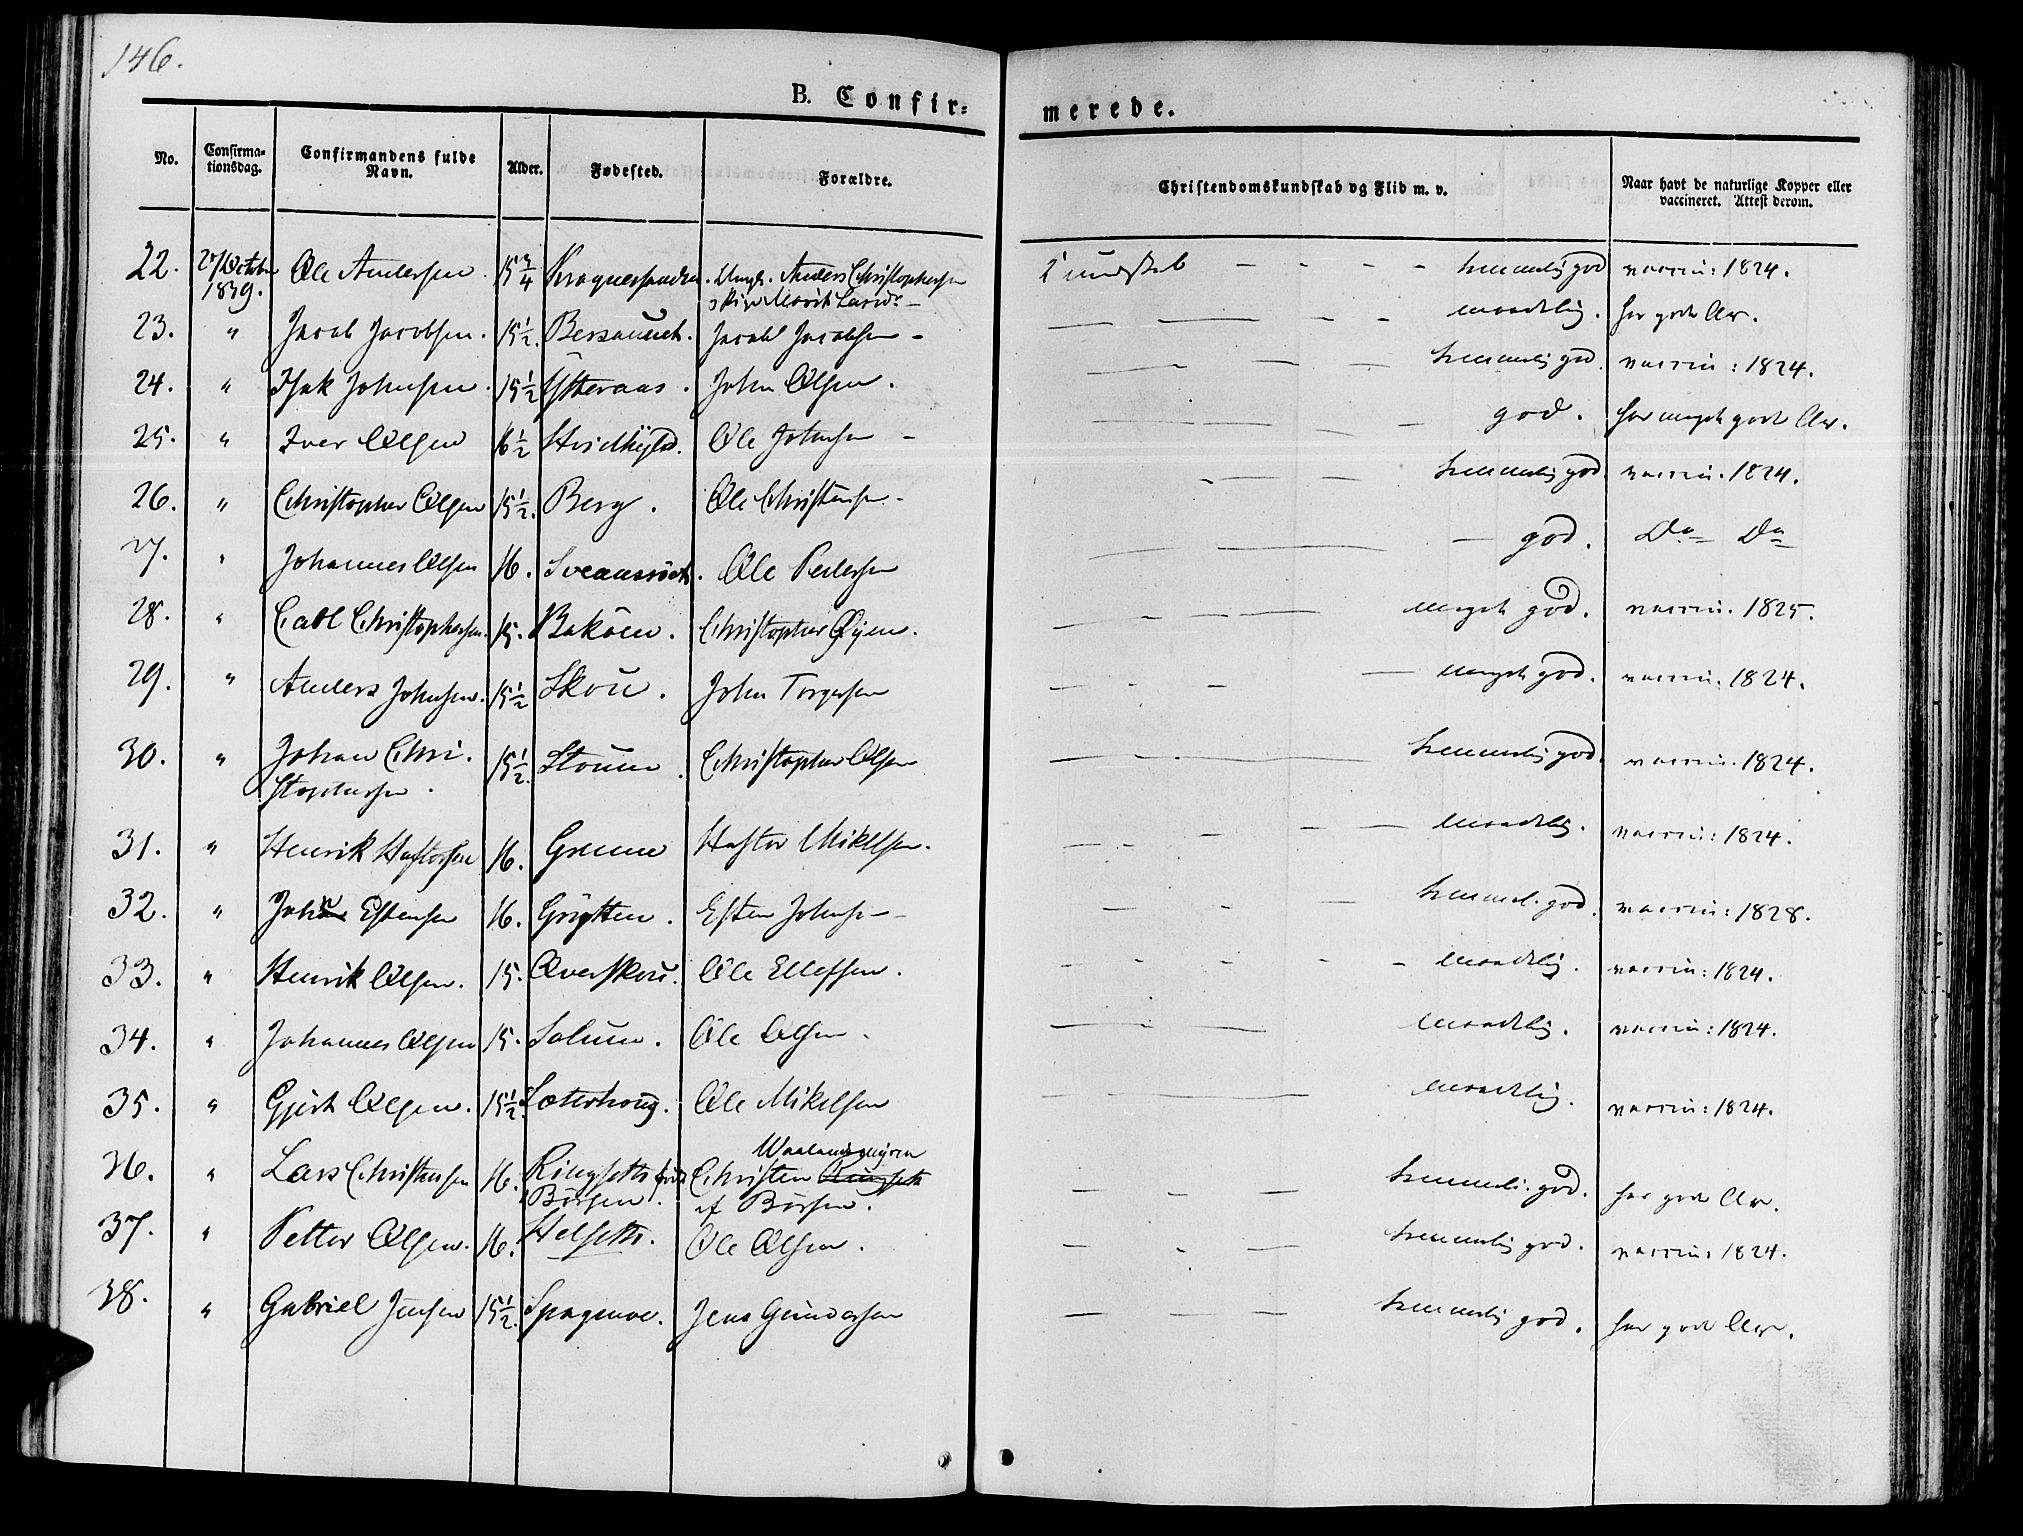 146.
B. Confir=
merede.
No. Confirma-tionsdag. Confirmandens fulde Navn. Alder. Fødested. Forældre. Christendomskundskab og Flid m. v. Naar havt de naturlige Kopper eller vaccineret. Attest derom.
22. 27 October 1839. Ole Andersen. 15 3/4 Ungk. Anders Christophersen Kundskab - - - - temmelig god vaccin: 1824.
pige Marit Larsd. -
23. " Jacob Jacobsen. 15 1/2. Jacob Jacobsen - maadelig. har gode Ar.
24. " Isak Johnsen. 15 1/2 Ystteraas. John Olsen. temmelig god. vaccin: 1824.
25. " Iver Olsen 16 1/2 Ole Johnsen - god. har meget gode Ar.
26. " Christopher Olsen 15 1/2. Berg. Ole Christensen - temmelig god vaccin. 1824.
27. " Johannes Olsen 16. Ole Pedersen - god. Do Do
28. " Carl Christophersen. 15. Bakøen. Christopher Øyen. meget god. vaccin. 1825.
29. " Anders Johnsen. 15 1/2 Skou. John Torgersen meget god. vaccin. 1824.
30. " Johan Chri- 15 1/2. Stouen. Christopher Olsen temmelig god. vaccin. 1824.
stophersen.
31. " Henrik Haftorsen 16. Grenne Haftor Mikelsen. maadelig. vaccin: 1824.
32. " John Estensen 16. Grytten. Esten Johnsen - temmel. god. vaccin: 1828.
33. " Henrik Olsen. 15. Overskou. Ole Ellefsen. maadelig. vaccin: 1824.
34. " Johannes Olsen 15. Solum. Ole Olsen. maadelig. vaccin: 1824.
35. " Gjert Olsen. 15 1/2. Sæterhoug. Ole Mikelsen maadelig. vaccin: 1824.
36. " Lars Christensen 16. Ringseth Christen temmeli. god. har gode Ar.
Børsen. af Børsen.
37. " Petter Olsen. 16. Helseth. Ole Olsen. temmelig god. vaccin: 1824.
38. " Gabriel Jensen 15 1/2. Jens Gundersen temmelig god. har gode Ar.